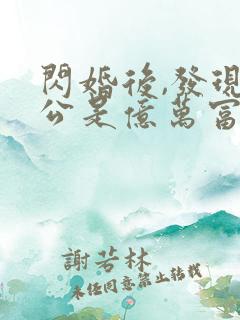 閃婚後,發現
公是億萬富
謝若林
未經同意禁止轉載